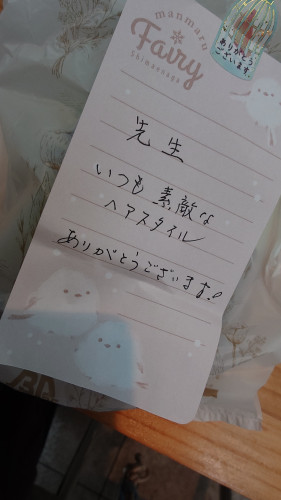 manmaru
Fairy
Shimaenaga
ありがとう
ございます。
先生
いつも 素敵な
ヘアスタイル
ありがとうございます!